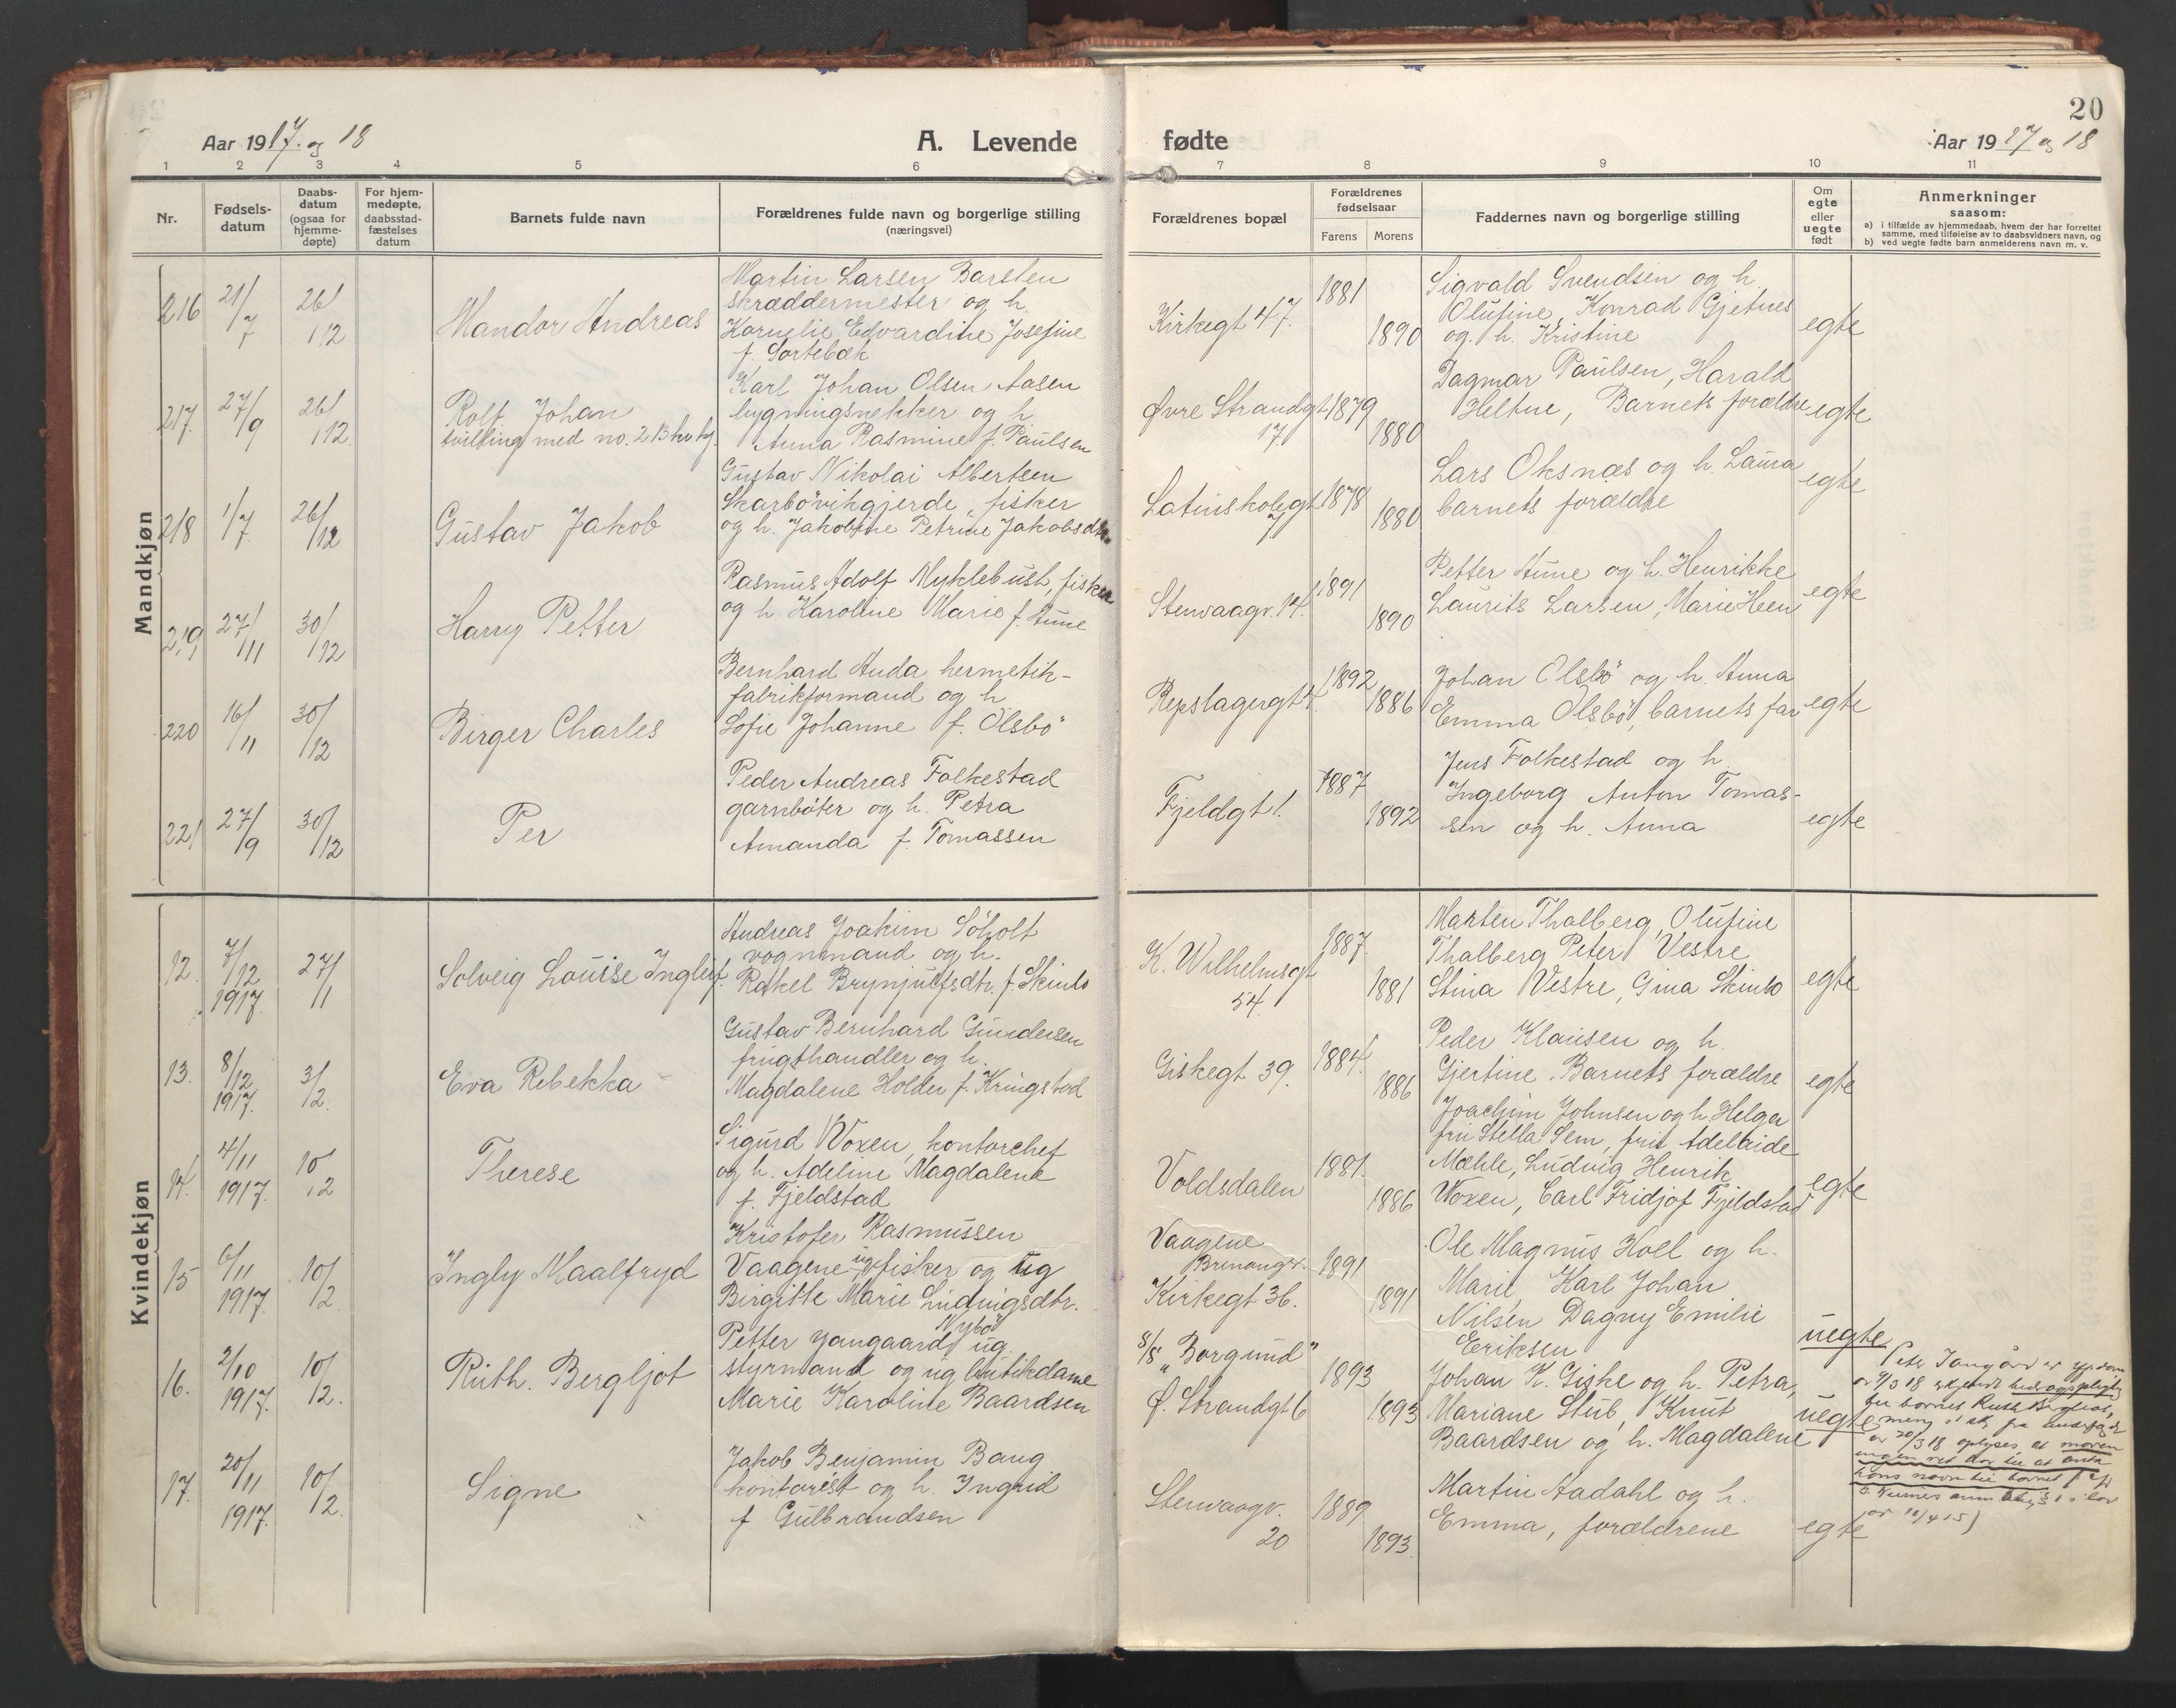 20
Aar 1917. og 18
A. Levende fødte
Aar 1917 og 18
1 2 3 4 5 6 7 8 9 10 11
Nr.
Fødsels-
datum
Daabs-
datum
(ogsaa for
hjemme-
døpte)
For hjem-
medøpte,
daabsstad-
fæstelses
datum
Barnets fulde navn
Forældrenes fulde navn og borgerlige stilling
(næringsvei)
Forældrenes bopæl
Forældrenes
fødselsaar
Farens Morens
Faddernes navn og borgerlige stilling
Om
egte
eller
uegte
født
Anmerkninger
saasom:
a) i tilfælde av hjemmedaab, hvem der har forrettet
samme, med tilføielse av to daabsvidners navn, og
b) ved uegte fødte barn anmelderens navn m. v.
Mandkjøn
216
21/7
26/12
Mandor Andreas
Martin Larsen Barsten
skræddermester og h.
Kornelie Edvardine Josefine
f. Sortebæk
Kirkegt 47.
1881
1890
Sigvald Svendsen og h.
Olufine, Konrad Gjetnes
og h. Kristine
egte
217.
27/9
26/12
Rolf Johan
tvilling med no. 213 kv kj.
Karl Johan Olsen Aasen
bygningsnekker og h
Anna Rasmine f. Paulsen
Øvre Strandgt
17.
1879
1880
Dagmar Paulsen, Harald
Heltne, Barnets forældre
egte
218
1/7
26/12
Gustav Jakob
Gustav Nikolai Albertsen
Skarbövikgjerde, fisker
og h. Jakobine Petrine Jakobsdtr.
Latinskolegt
7
1878
1880
Lars Oksnæs og h. Laura
barnets forældre
egte
219
27/11
30/12
Harry Petter
Rasmus Adolf Myklebust, fisker
og h. Karoline Marie f. Aune
Stenvaagv. 14.
1891
1890
Petter Aune og h. Henrikke
Laurits Larsen, Marie Heen
egte
220
16/11
30/12
Birger Charles
Bernhard Auda hermetik-
fabrikformand og h
Sofie Johanne f. Olsbö
Repslagergt 4.
1892
1886
Johan Olsbö og h. Anna
Emma Olsbö, barnets far
egte
221
27/9
30/12
Per
Peder Andreas Folkestad
garnböter og h. Petra
Amanda f. Tomassen
Fjeldgt 1.
1887
1892
Jens Folkestad og h
Ingeborg Anton Tomas-
sen og h. Anna
egte
Kvindekjøn
12.
7/12
1917.
27/1
Solveig Louise Ingleif.
Andreas Joakim Söholt
vognmand og h.
Rakel Brynjulfsdtr. f. Skinlo
K. Wilhelmsgt
54
1887.
1881
Marten Thalberg, Olufine
Thalberg Peter Vestre
Stina Vestre, Gina Skinlo
egte
13.
8/12
1917.
3/2.
Eva Rebekka
Gustav Bernhard Gundersen
frugthandler og h.
Magdalene Holder f. Kringstad
Giskegt 39.
1884.
1886
Peder Klausen og h.
Gjertine. Barnets forældre
egte
14.
4/11
1917.
10/2
Therese
Sigurd Woxen, kontorchef
og h. Adeline Magdalene
f. Fjeldstad
Voldsdalen
1881.
1886
Joachim Johnsen og h Helga
fru Stella Sem, fru Adelaide
Mæhle, Ludvig Henrik
Woxen, Carl Fridjof Fjeldstad
egte
15
6/11
1917.
10/2.
Ingly Maalfryd
Kristofer Rasmussen
Vaagene ug fisker og ug
Birgitte Marie Ludvigsdtr.
Nybö
Vaagene
Kirkegt 36.
1891
1891
Ole Magnus Holl og h.
Marie, Karl Johan
Nilsen Dagny Emilie
Eriksen
uegte
16.
2/10
1917.
10/2.
Ruth. Bergljot
Petter Yangaard ug.
styrmand og ug butikdame
Marie Karoline Baardsen
S/S „Borgund"
Ø. Strandgt 6
1893
1893
Johan K. Giske og h. Petra,
Mariane Stub, Knut
Baardsen og h. Magdalene
uegte
for barnet Ruth Bergljot,
17.
20/11
1917.
10/2.
Signe
Jakob Benjamin Bang
kontorist og h. Ingrid
f Gulbrandsen
Stenvaagv.
20
1889
1893.
Martin Aadahl og h.
Emma, forældrene
egte